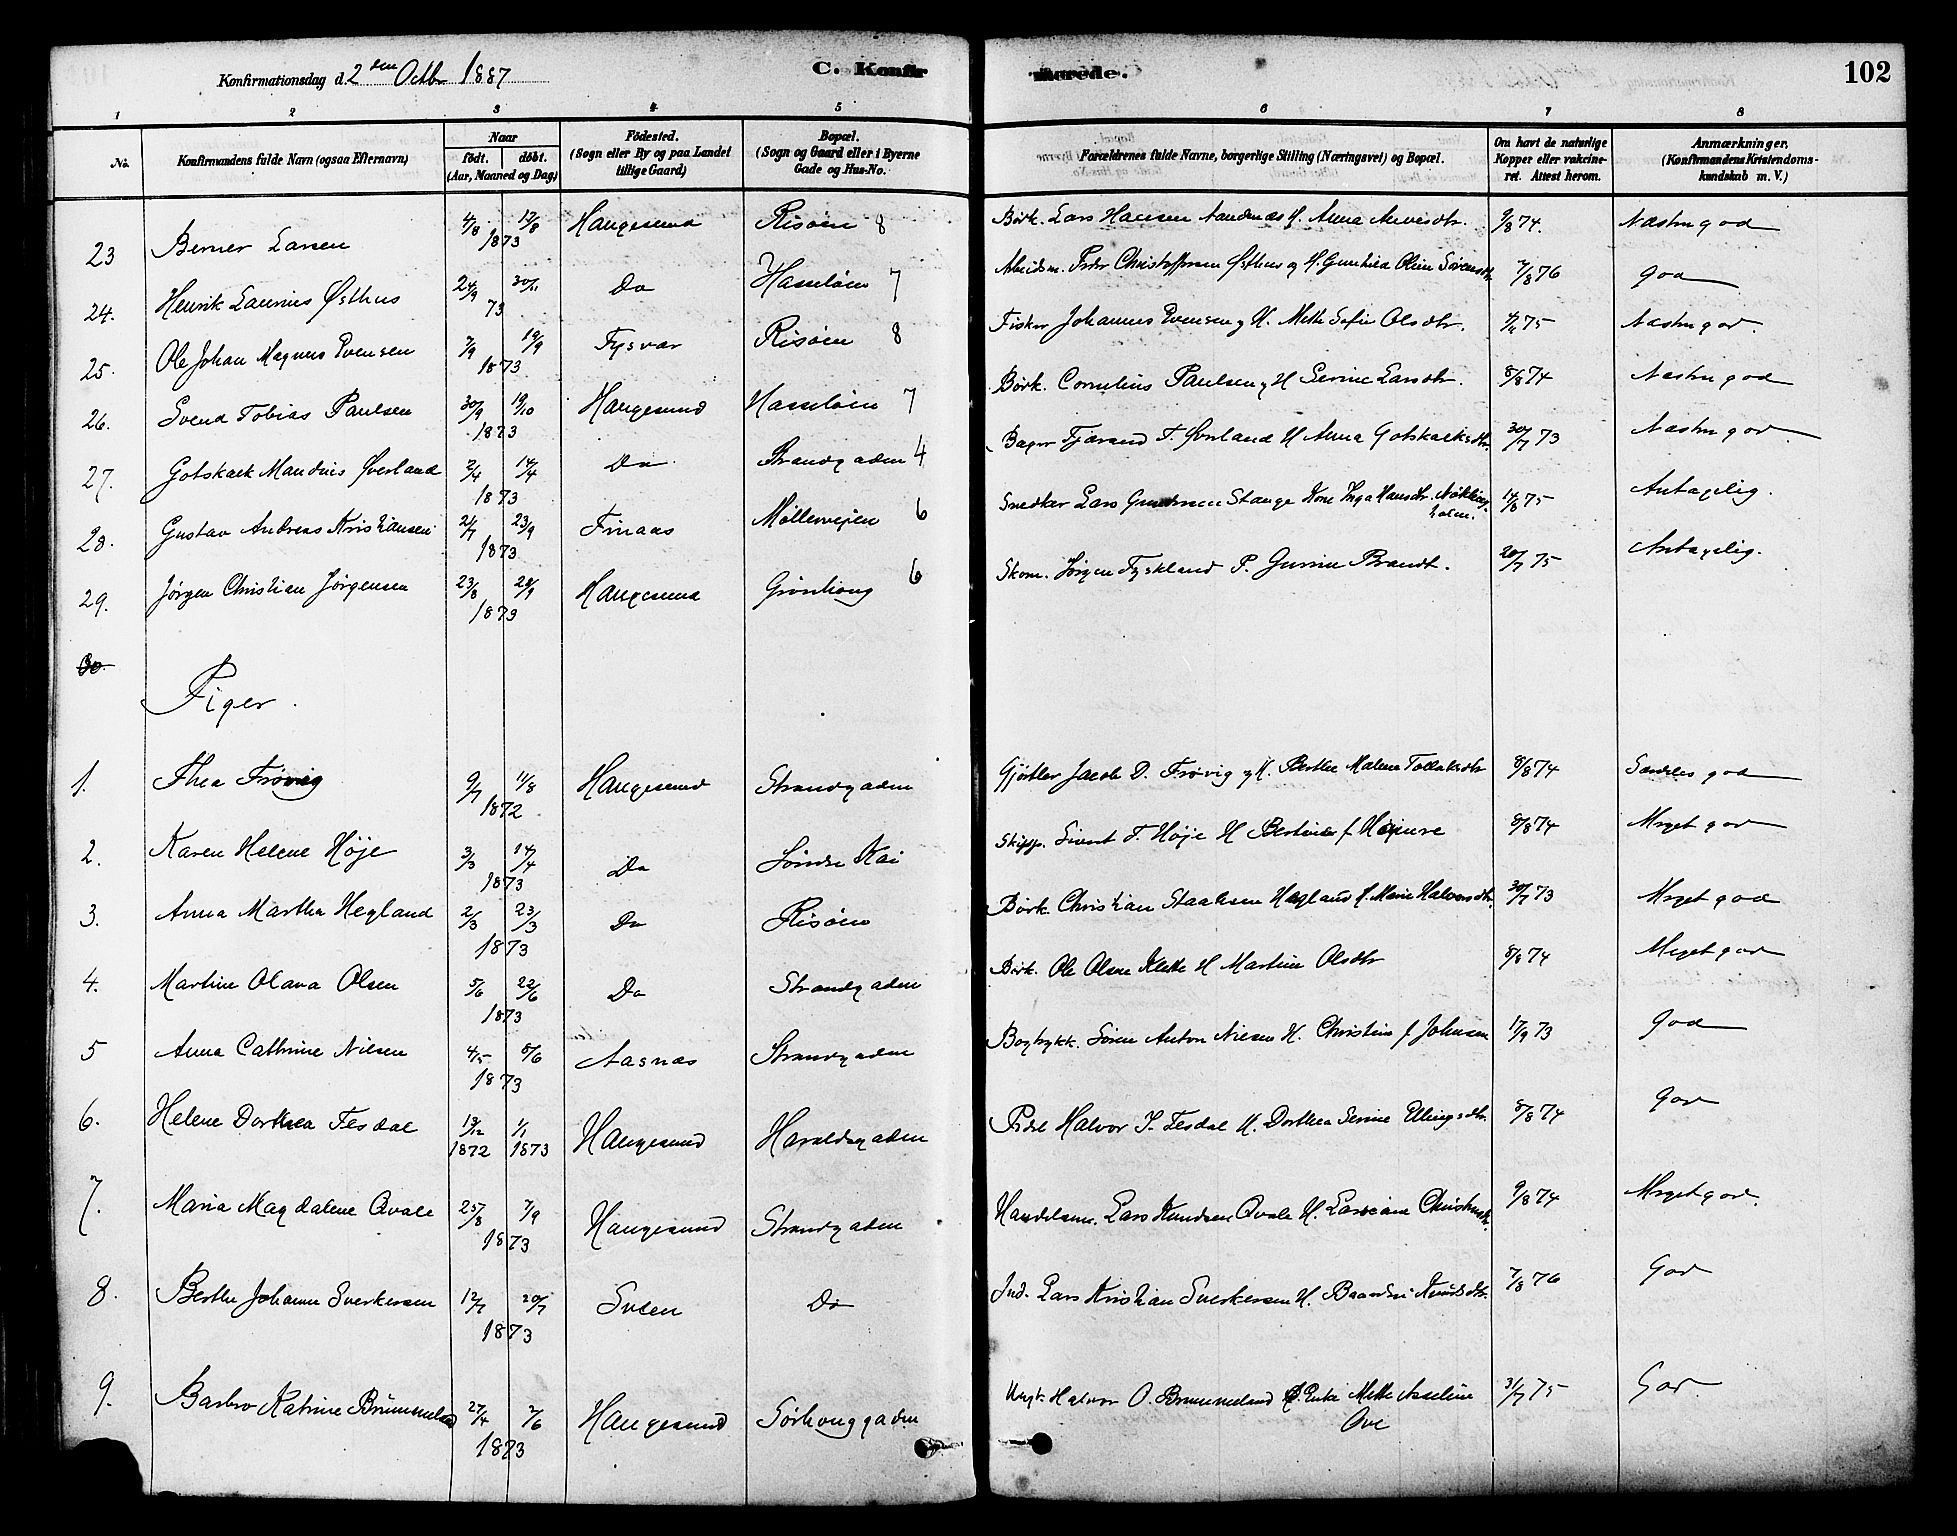 Konfirmationsdag d. 2den Octbr 1887
C. Konfirmerede.
102
1 2 3 4 5 6 7 8
No.
Konfirmandens fulde Navn (ogsaa Efternavn)
Naar
födt. döbt.
(Aar, Maaned og Dag)
Födested.
(Sogn eller By og paa Landet
tillige Gaard)
Bopæl.
(Sogn og Gaard eller i Byerne
Gade og Hus-No.
Forældrenes fulde Navne, borgerlige Stilling (Næringsvei) og Bopæl.
Om havt de naturlige
Kopper eller vakcine-
ret. Attest herom.
Anmærkninger.
(Konfirmandens Kristendoms-
kundskab m. V.)
23 Berner Larsen 4/8 17/8 1873 Haugesund Risøen 8 Børk. Lars Hansen H. Anna 9/8 74. Næstengod
24. Henrik Laurius Østhus 24/9 30/11 73 Do Hasseløen 7 Arbeidsm. Peder Christoffersen Østhus og H. Gunhild Oline Sørensdtr 7/8 76 god
25. Ole Johan Magnus Evensen 7/9 19/9 1873 Tysvær Risøen 8 Fisker Johannes Evensen og H. Mette Sofie Olsdtr. 75 Næstengod.
26. Svend Tobias Paulsen 30/9 19/10 1873 Haugesund Hasseløen 7 Børk. Cornelius Paulsen og H Serine Larsdtr. 8/8 74 Næstengod
27. Gotskalk Mandius Øverland 2/4 14/4 1873 Do Strandgaden 4 Bager Tjerand T. Øverland H Anna Gotskalksdtr. 30/7 73 Næstengod
28. Gustav Andreas Kristiansen 21/7 23/9 1873 Finaas Møllerveien 6 Snedker Lars Stange Kone Inga Hansdtr. 14/8 75 Antagelig.
29. Jørgen Christian Jørgensen 23/8 28/9 1873 Haugesund Grønhaug 6 Skom. Jørgen Tyskland P. Gurine Brandt. 20/7 75 Antagelig.
30.
Piger.
1. Thea Frøvig 9/7 11/8 1872 Haugesund Strandgaden Gjørtler Jacob D. Frøvig og H. Berthe Malene Tollaksdtr 8/8 74 Særdeles god
2. Karen Helene Høje 3/3 14/4 1873 Do Søndre Kai Skipp. Sivert T. Høje H Bertine f. 8/8 74 Meget god
3. Anna Martha Hegland 2/3 23/3 1873 Do Risøen Børk. Christian Staalesen Hegland H. Marie Halvorsdtr. 30/7 73 Meget god
4. Martine Olava Olsen 5/6 22/6 1873 Do Strandgaden Børk. Ole Olsen Klette H Martine Olsdtr 8/8 74 Meget god
5 Anna Cathrine Nilsen 4/5 8/6 1873 Aasnæs Strandgaden Bogtrykk. Søren Anton Nilsen H. Christine f Johnsen 17/9 73 god
6. Helene Dorthea Tesdal 13/12 1872 1/1 1873 Haugesund Haraldsgaden Halvor Tesdal H. Dorthea Serine Ellingsdtr. 8/8 74 god
7. Maria Magdalene Qvale 25/8 7/9 1873 Haugesund Strandgaden Handelsm. Lars Knudsen Qvale H. 9/8 74 Meget god.
8. Berthe Johanne Sverkersen 12/7 20/7 1873 Sveen Do Ind. Lars Kristian Sverkersen H. Knudsdtr. 7/8 76 God
9. Barbro Katrine Brummeland 27/4 2/6 1873 Haugesund Sørhauggaden Halvor O. Brummeland Enke Mette Asseline Ove 31/7 75 God.